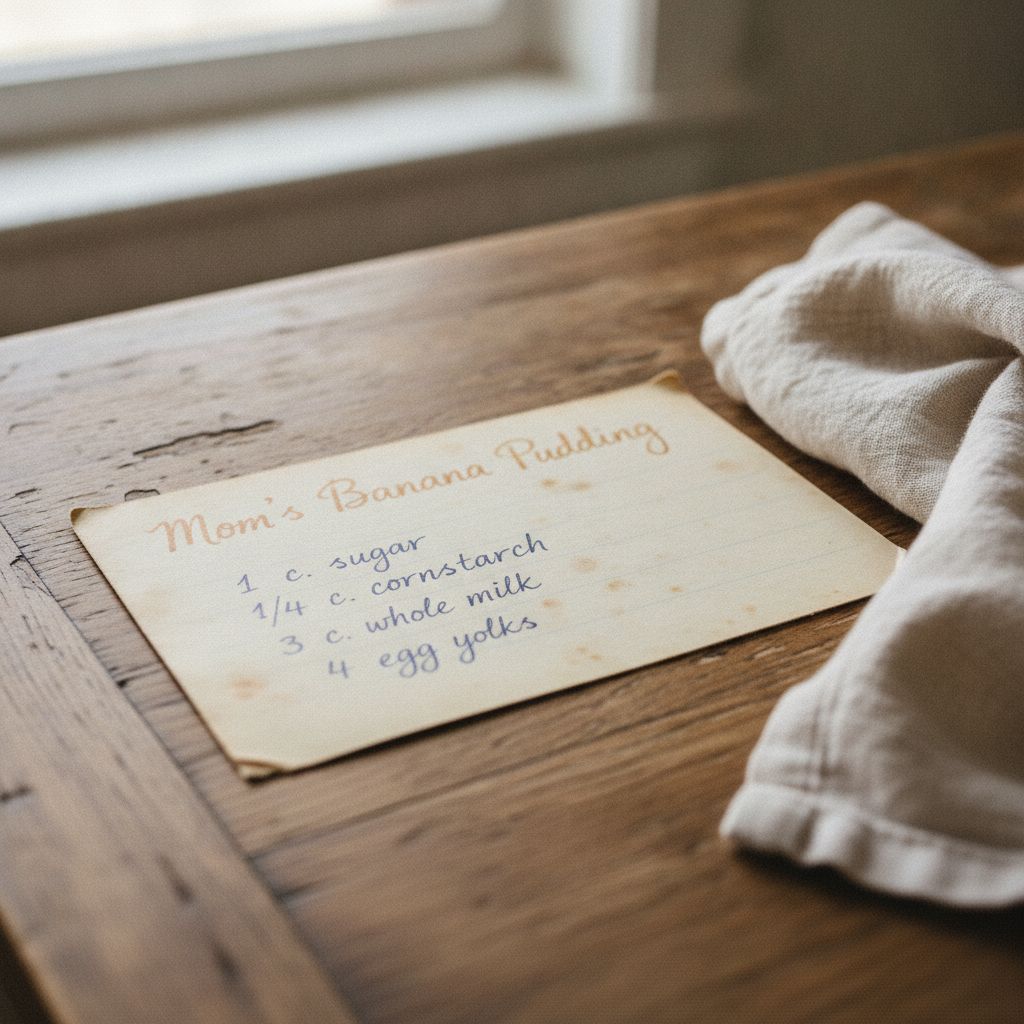 Mom's Banana Pudding
1 c. sugar
1/4 c. cornstarch
3 c. whole milk
4 egg yolks